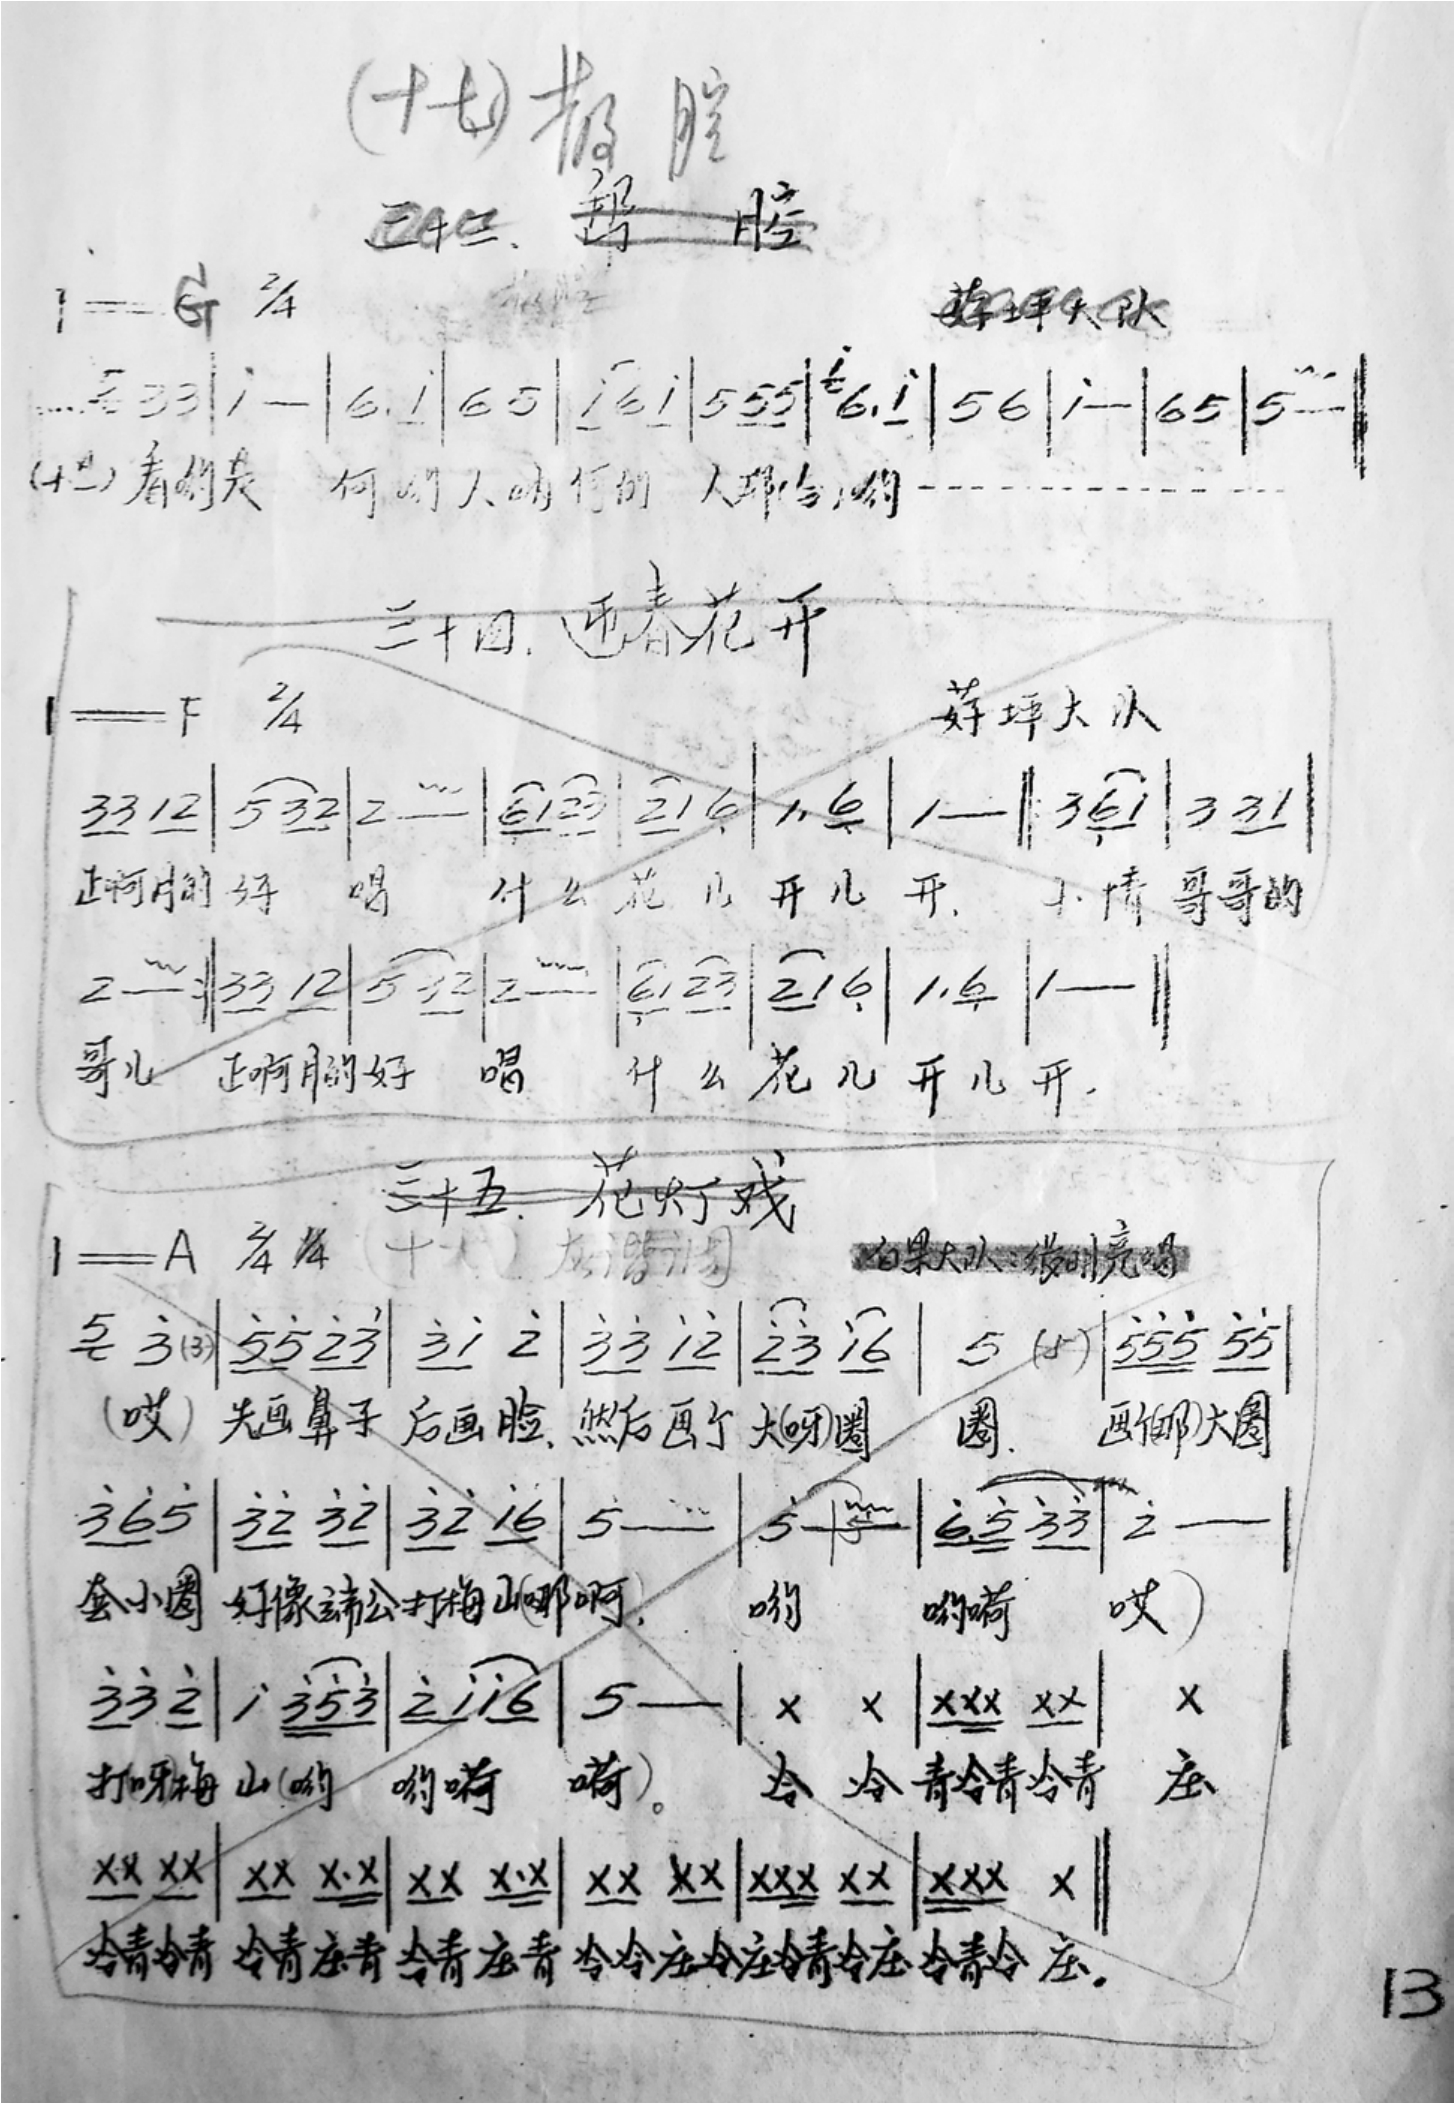 (十七) 散腔
三十三、帮 腔
1 = G 2/4
荞坪大队
33 | i — | 6. i | 6 5 | i 6 i | 5 5 5 | 6. i | 5 6 | i — | 6 5 | 5 — ‖
看哟是 何哟人呐何的 人耶(台)哟
三十四、迎春花开
1 = F 2/4 荞坪大队
33 12 | 5 32 | 2 — | 61 23 | 21 6 | 1. 6 | 1 — ‖ 3 61 | 3 31 |
正啊月的 好 唱 什么 花儿 开儿 开、 小情 哥哥的
2 — :‖ 33 12 | 5 32 | 2 — | 61 23 | 21 6 | 1. 6 | 1 — ‖
哥儿 正啊月的好 唱 什么 花儿 开儿 开.
三十五、花灯戏
1 = A 2/4 1/4 (十八)
白果大队:
5 3 (3) | 55 23 | 31 2 | 33 12 | 23 16 | 5 (5) | 555 55 |
(哎) 先画鼻子 后画脸、然后画个 大(呀)圈 圈. 画个(耶)大圈
3 6 5 | 32 32 | 32 16 | 5 — | 5 — | 6.5 33 | 2 — |
套小圈 好像端公打梅山(耶啊, 哟 哟嗬 哎)
33 2 | i 353 | 2 i i 6 | 5 — | x x | xxx xx | x |
打(呀)梅 山(哟 哟嗬 嗬)。 冷 冷 青冷青冷青 庄
xx xx | xx x.x | xx x.x | xx xx | xxx xx | xxx x ‖
冷青冷青 冷青庄青 冷青庄青 冷冷庄冷庄冷青冷庄 冷青冷 庄.
13